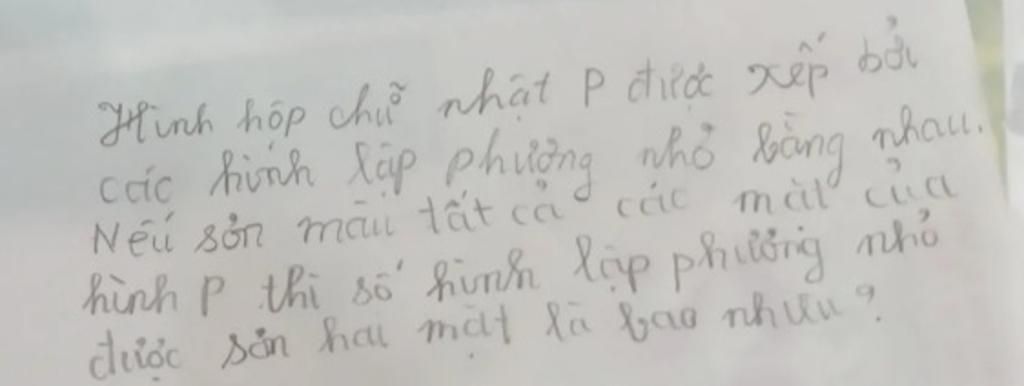 Hình hộp chữ nhật P được xếp bởi
các hình lập phương nhỏ bằng nhau.
Nếu sơn màu tất cả các mặt của
hình P thì số hình lập phương nhỏ
được sơn hai mặt là bao nhiêu?